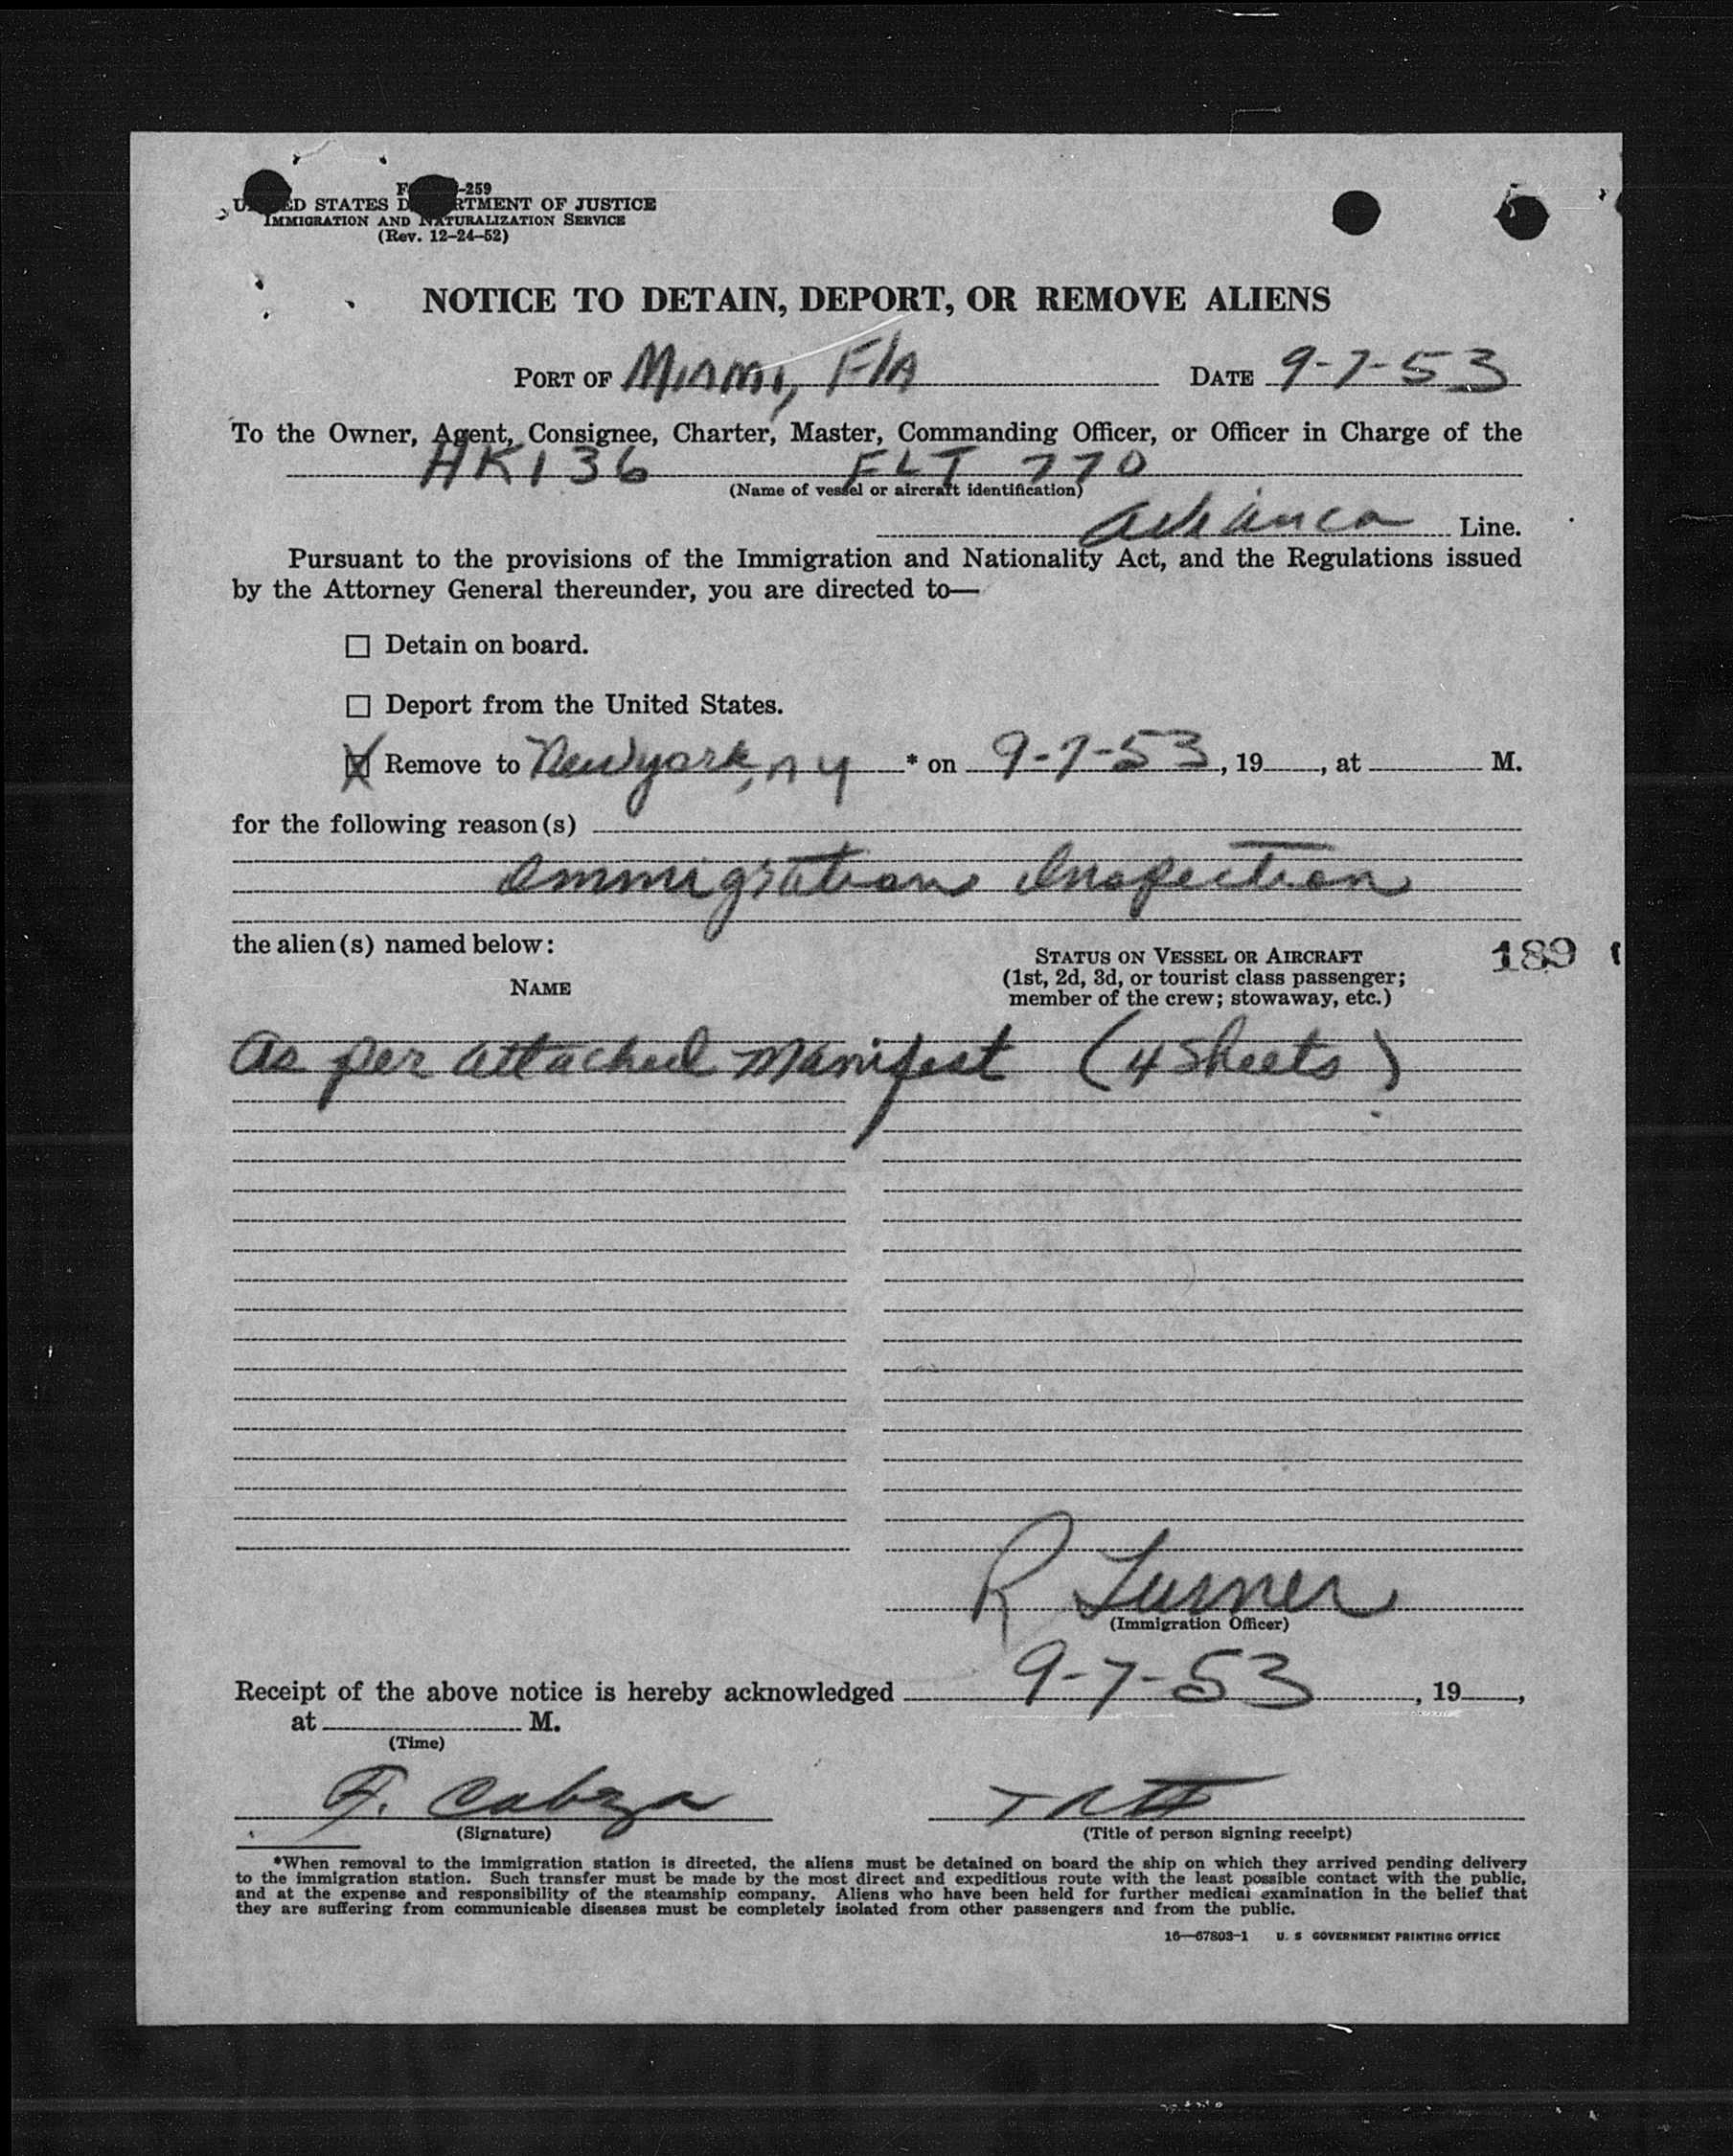 -259
ED STATES D RTMENT OF JUSTICE
IMMIGRATION AND NATURALIZATION SERVICE
(Rev. 12-24-52)
NOTICE TO DETAIN, DEPORT, OR REMOVE ALIENS
PORT OF Miami, Fla DATE 9-7-53
To the Owner, Agent, Consignee, Charter, Master, Commanding Officer, or Officer in Charge of the
HK136 FLT 770
(Name of vessel or aircraft identification)
Avianca Line.
Pursuant to the provisions of the Immigration and Nationality Act, and the Regulations issued
by the Attorney General thereunder, you are directed to—
☐ Detain on board.
☐ Deport from the United States.
☒ Remove to New york, NY * on 9-7-53, 19 , at M.
for the following reason(s)
Immigration Inspection
the alien(s) named below:
NAME
STATUS ON VESSEL OR AIRCRAFT
(1st, 2d, 3d, or tourist class passenger;
member of the crew; stowaway, etc.)
189
As per attached Manifest (4 sheets)
R Turner
(Immigration Officer)
Receipt of the above notice is hereby acknowledged 9-7-53, 19 ,
at M.
(Time)
F. Cabeza
(Signature) (Title of person signing receipt)
*When removal to the immigration station is directed, the aliens must be detained on board the ship on which they arrived pending delivery
to the immigration station. Such transfer must be made by the most direct and expeditious route with the least possible contact with the public,
and at the expense and responsibility of the steamship company. Aliens who have been held for further medical examination in the belief that
they are suffering from communicable diseases must be completely isolated from other passengers and from the public.
16—67803-1 U. S GOVERNMENT PRINTING OFFICE